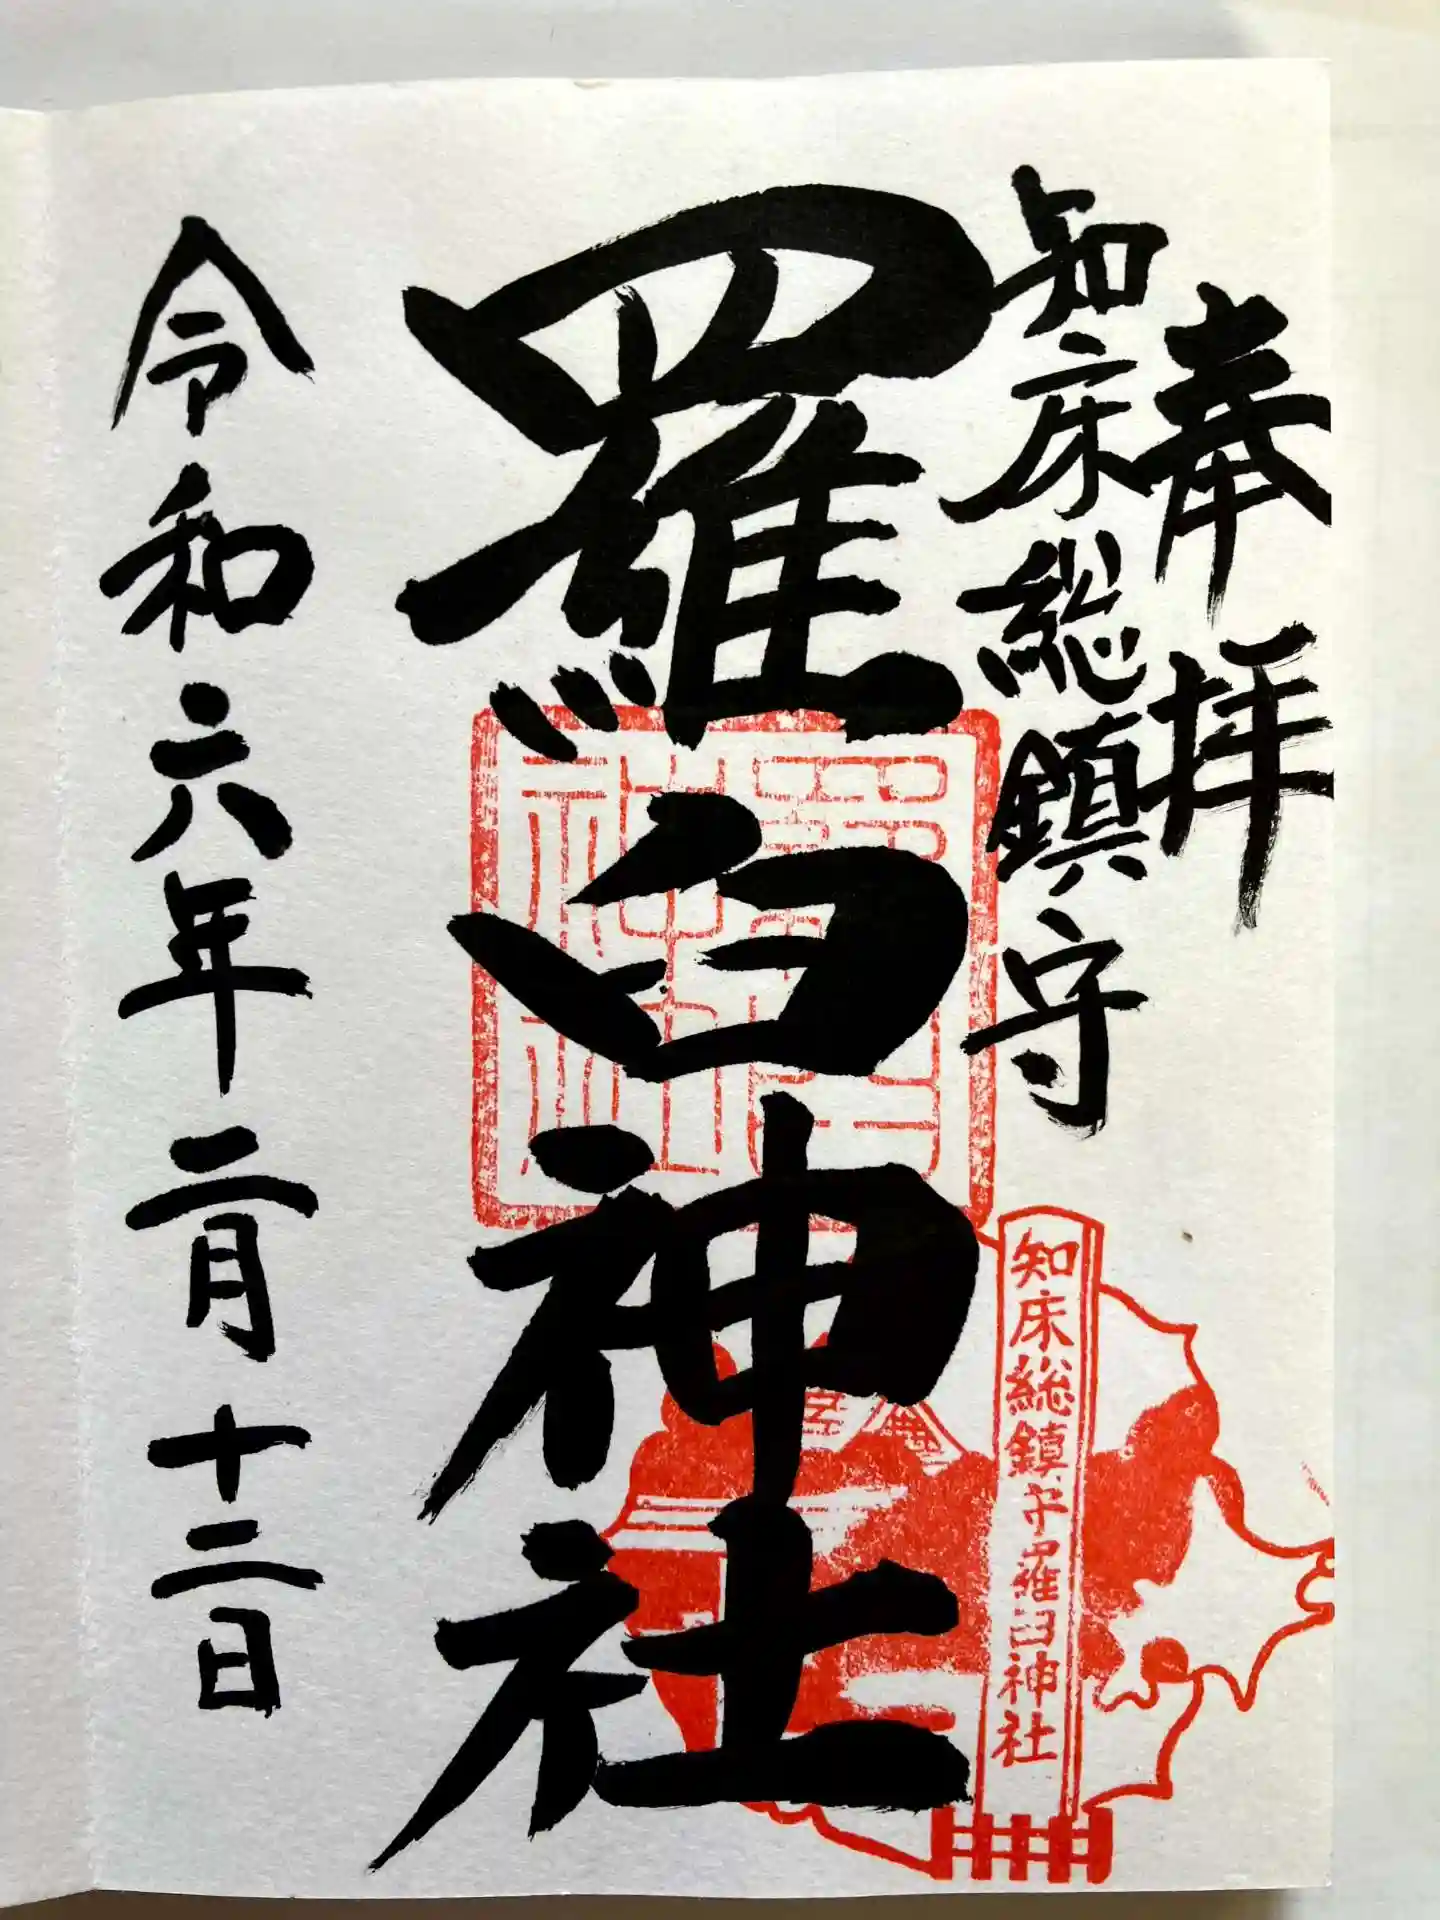 奉拝
知床総鎮守
羅臼神社
令和六年二月十二日
羅臼神社
知床総鎮守羅臼神社